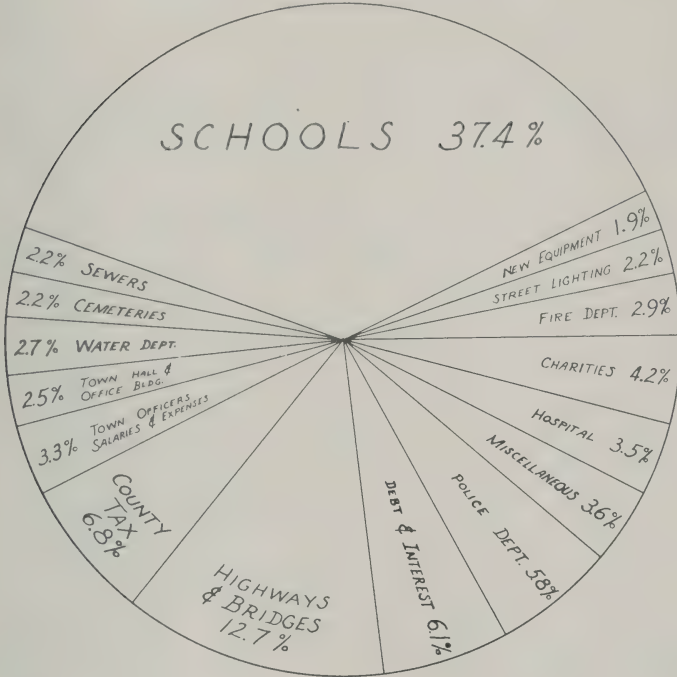 SCHOOLS 37.4%
NEW EQUIPMENT 1.9%
STREET LIGHTING 2.2%
FIRE DEPT. 2.9%
CHARITIES 4.2%
HOSPITAL 3.5%
MISCELLANEOUS 3.6%
POLICE DEPT. 5.8%
DEBT & INTEREST 6.1%
HIGHWAYS
& BRIDGES
12.7%
COUNTY
TAX
6.8%
3.3% TOWN OFFICERS
SALARIES & EXPENSES
2.5% TOWN HALL &
OFFICE BLDG.
2.7% WATER DEPT.
2.2% CEMETERIES
2.2% SEWERS